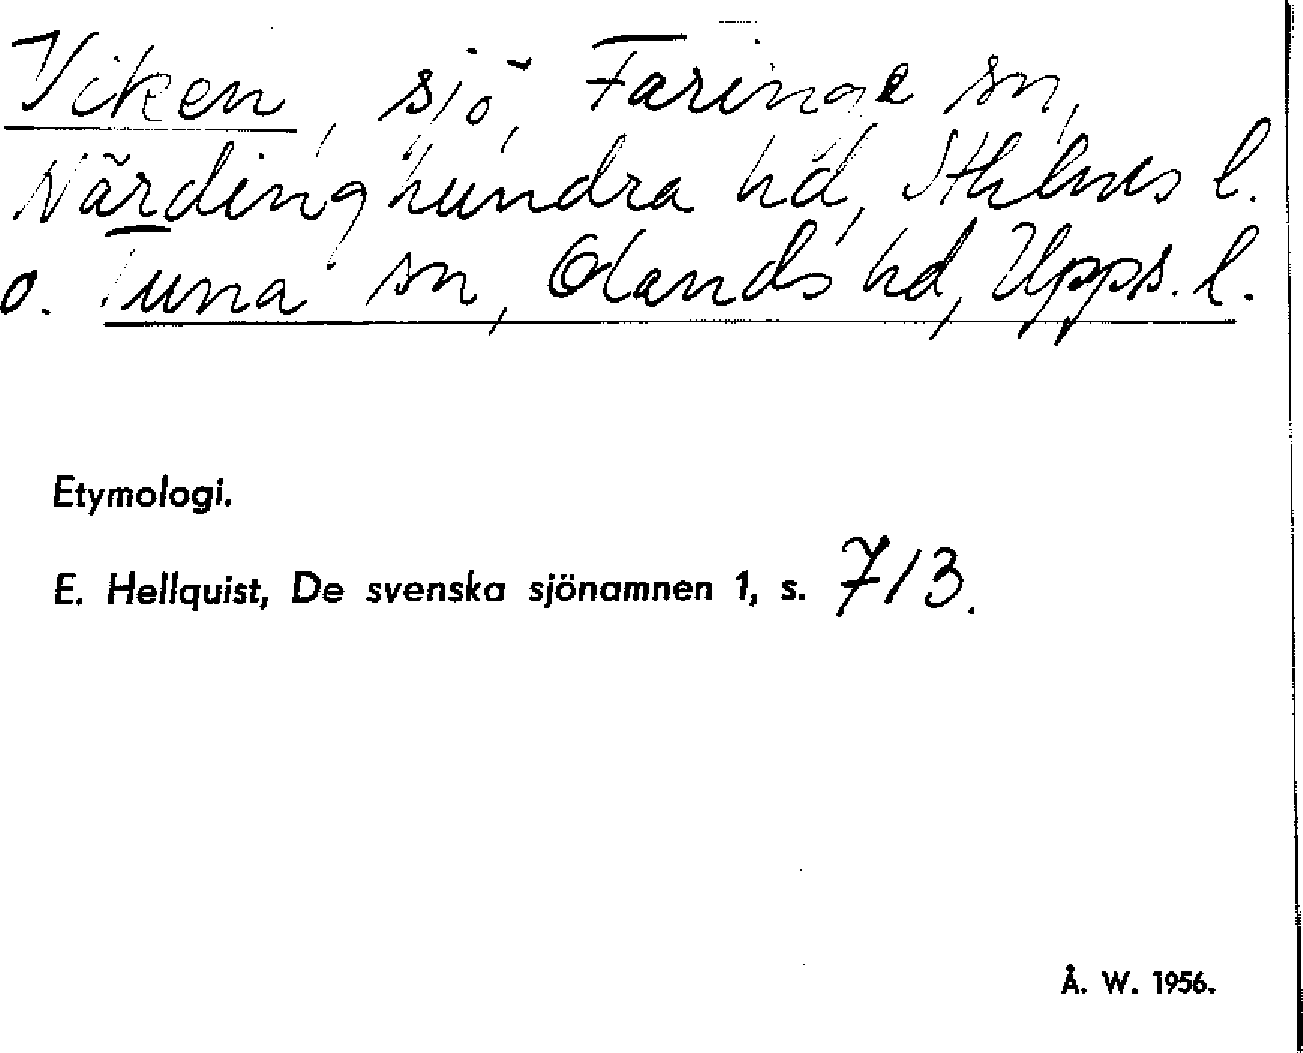 Viken, sjö, Faringe sn,
Närdinghundra hd, Sthlms l.
o. Tuna sn, Olands hd, Upps. l.
Etymologi.
E. Hellquist, De svenska sjönamnen 1, s. 713.
Å. W. 1956.